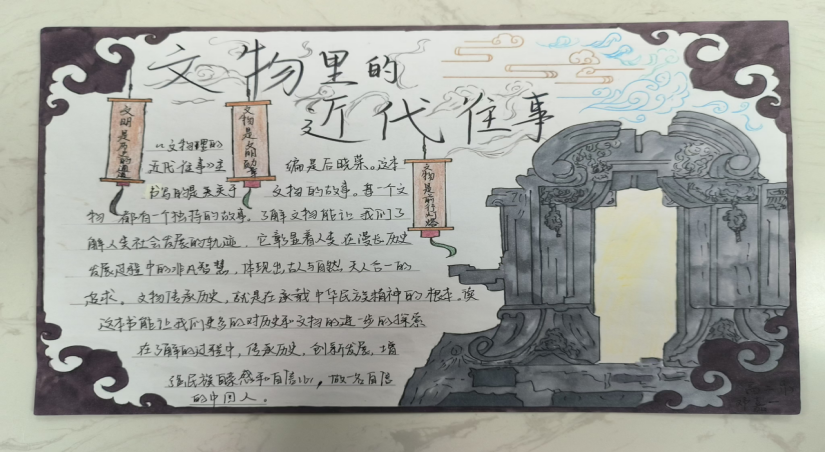 文物里的
近代往事
文明是历史的追溯
文物是文明的
文物是前行灯塔
《文物里的
近代往事》主
编是后晓荣。这本
书写的是关于
文物的故事。每一个文
物都有一个独特的故事。了解文物能让我们了
解人类社会发展的轨迹，它彰显着人类在漫长历史
发展过程中的非凡智慧，体现出古人与自然天人合一的
追求。文物传承历史，就是在承载中华民族精神的根本。读
这本书能让我们更多的对历史和文物的进一步的探索
在了解的过程中，传承历史，创新发展，增
强民族自豪感和自信心，做名自信
的中国人。